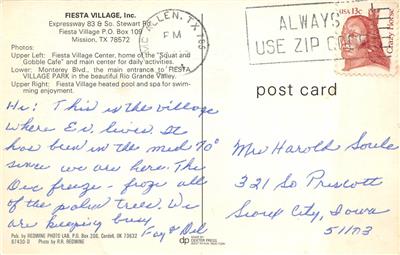 FIESTA VILLAGE, Inc.
Expressway 83 & So. Stewart Rd.
Fiesta Village P.O. Box 109
Mission, TX 78572
Photos:
Upper Left: Fiesta Village Center, home of the "Squat and
Gobble Cafe" and main center for daily activities.
Lower: Monterey Blvd., the main entrance to FIESTA
VILLAGE PARK in the beautiful Rio Grande Valley.
Upper Right: Fiesta Village heated pool and spa for swim-
ming enjoyment.
McALLEN, TX 785
PM
ALWAYS
USE ZIP CODE
USA 13c
Crazy Horse
post card
Hi: This is the village
where Ev. lives. It
has been in the mid 70°
since we are here. The
Dec freeze - froze all
of the palm trees. We
are keeping busy
Fay & Del
Mrs Harold Soule
321 So Prescott
Sioux City, Iowa
51103
Pub. by REDWINE PHOTO LAB, P.O. Box 200, Cordell, OK 73632
87430-D Photo by R.R. REDWINE
dp
DEXTER PRESS